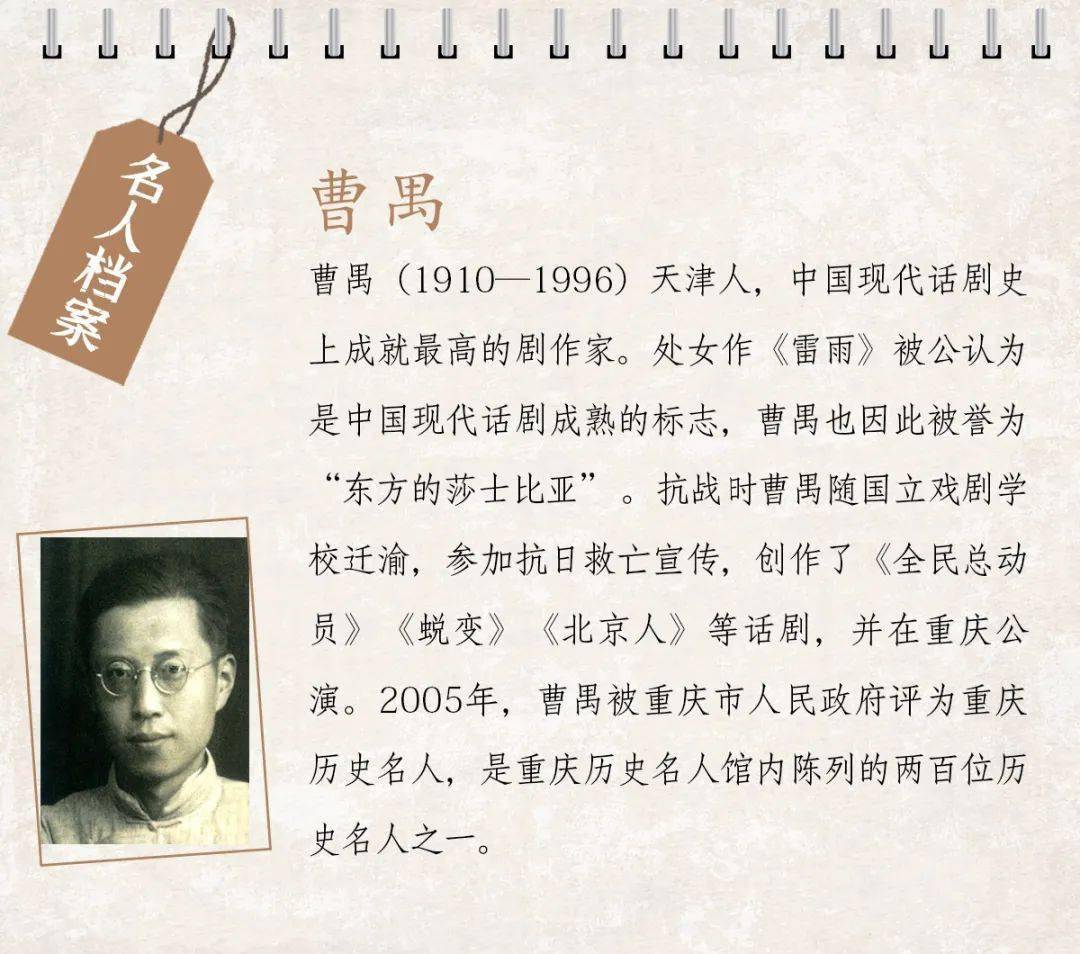 名人档案
曹禺
曹禺（1910—1996）天津人，中国现代话剧史
上成就最高的剧作家。处女作《雷雨》被公认为
是中国现代话剧成熟的标志，曹禺也因此被誉为
“东方的莎士比亚”。抗战时曹禺随国立戏剧学
校迁渝，参加抗日救亡宣传，创作了《全民总动
员》《蜕变》《北京人》等话剧，并在重庆公
演。2005年，曹禺被重庆市人民政府评为重庆
历史名人，是重庆历史名人馆内陈列的两百位历
史名人之一。